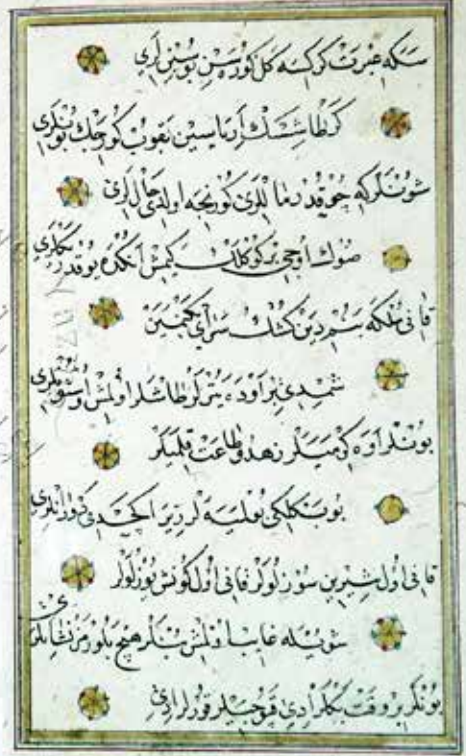 سكه عبرت كركسه كل كوره سن بو سنلري
كر طاشسڭ اريياسين بقوب كورجك بونلري
شونلركه چوقدر ماللري كور نيجه اولدي حاللري
صوڭ اوجي بر كوكلك كيمش انكده يوقدر يكلري
قاني ملكه بنم دين كشك سراي بكنمين
شمدي بر اوده يترلر طاشلر اولمش اوستونلري
بونلر اوه كرميلر زهد و طاعت قلميلر
بو بكلكي بولميه لر زيرا كچدي دورانلري
قاني اول شيرين سوزلولر قاني اول كونش يوزلولر
شويله غايب اولمش بونلر هيچ بلورمز نشانلري
بونلر بر وقت بكلر ادي قپوجيلر قورلر ادي